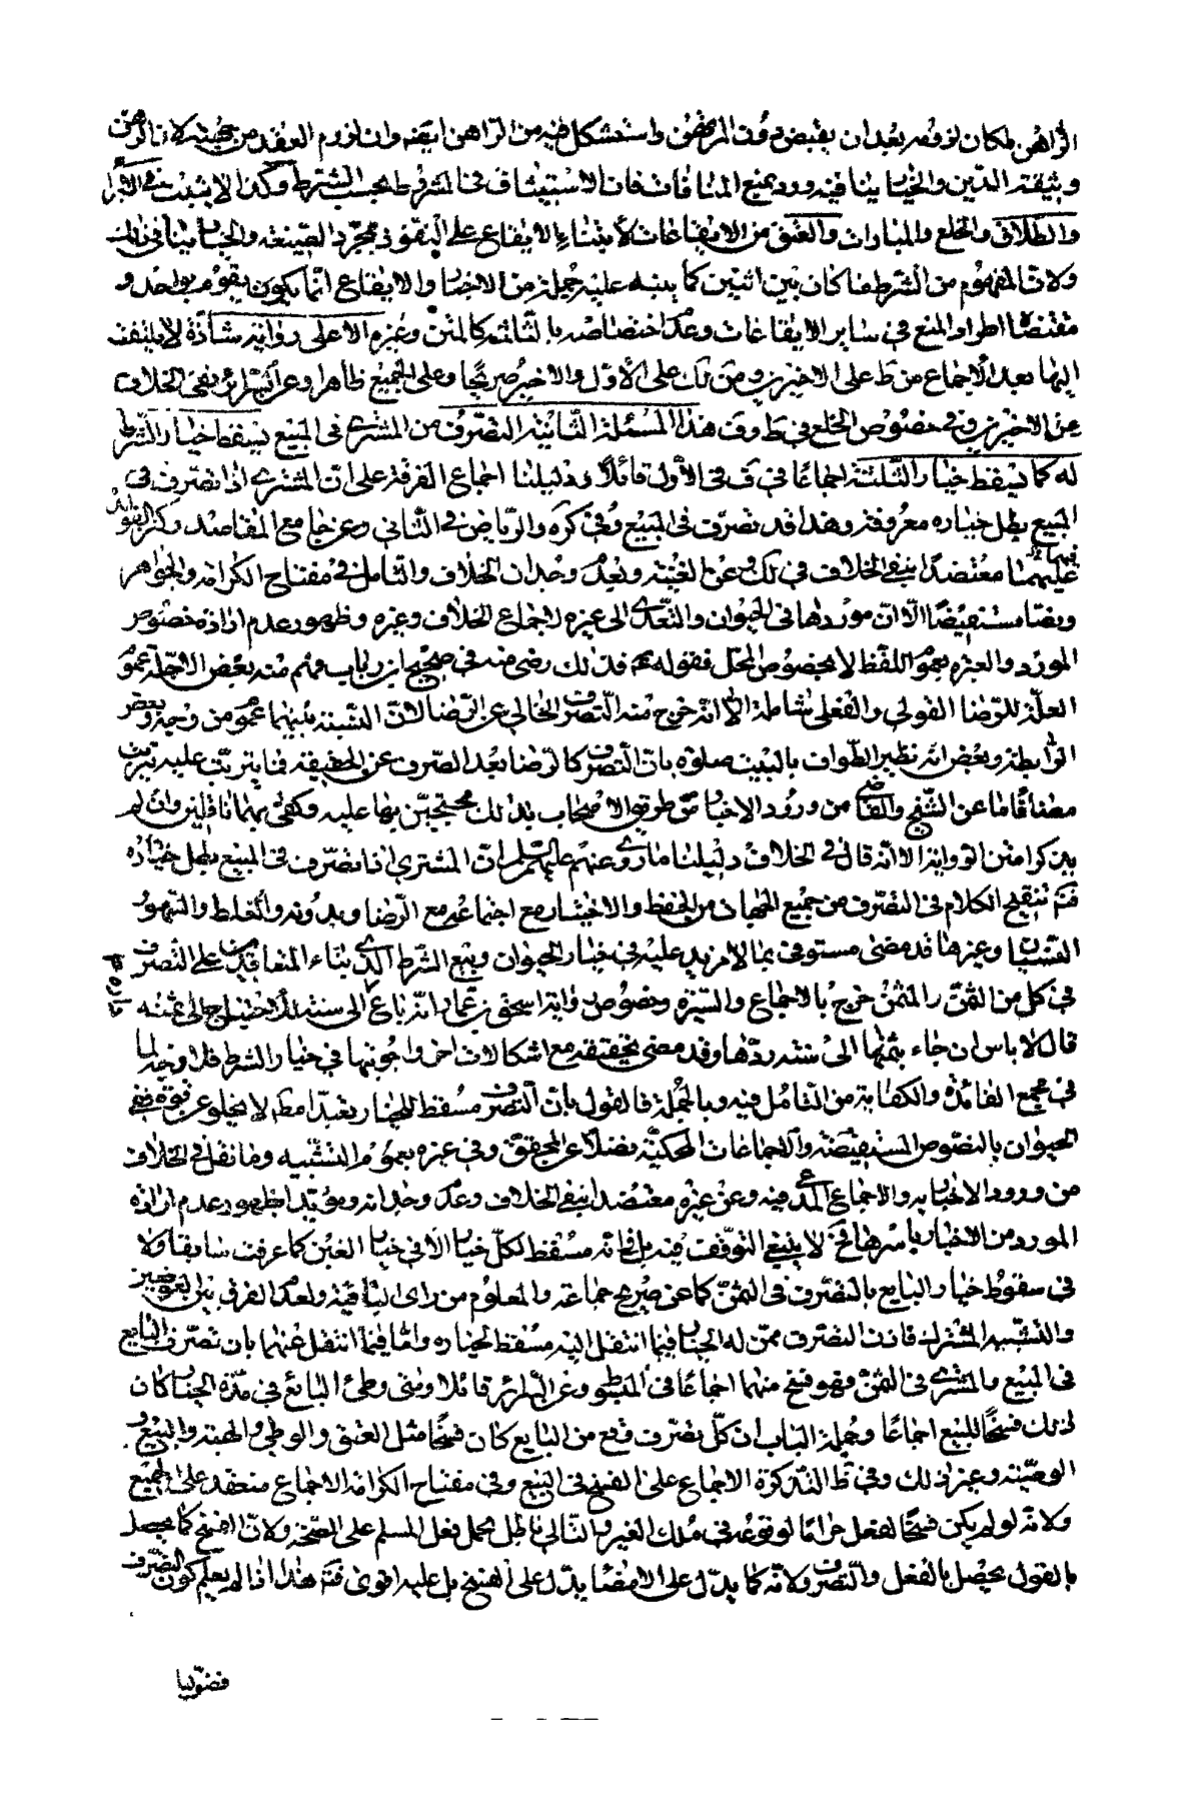 الراهن لمكان لزومه بعد ان يقبض دون المرتهن واستشكل فيه من الراهن ايضا وان لزوم العقد من جهته لان الرهن
وثيقة الدين والخيار ينافيه ورد بمنع المنافات فان الاستيثاق في المشروط بحسب الشرط وكذا لا يثبت في الابراء
والطلاق والخلع والمبارات والعتق من الايقاعات لابتناء الايقاع على النفوذ بمجرد الصيغة والخيار ينافى ذلك
ولان المفهوم من الشرط ما كان بين اثنين كما ينبه عليه جملة من الاخبار والايقاع انما يكون يقوم بواحد و
مقتضاه اطراد المنع في ساير الايقاعات وعدم اختصاصه بالثلثة كالمتن وغيره الا على رواية شاذة لا يلتفت
اليها بعد الاجماع من ط على الاخيرين ومن لك على الاول والاخير صريحا وعلى الجميع ظاهرا وعن السرائر نفى الخلاف
عن الاخيرين في خصوص الخلع في ط وفى هذا المسئلة الثانية التصرف من المشترى فى المبيع يسقط خيار الشرط
له كما يسقط خيار الثلثة اجماعا في ف في الأول قائلا دليلنا اجماع الفرقة على ان المشترى اذا تصرف فى
المبيع بطل خياره معروفة وهذا قد تصرف فى المبيع وفى كره والرياض في الثاني وعن جامع المقاصد وكنز الفوائد
فيهما
عليهما معتضدا بنفى الخلاف في لك وعن الغنية وبعدم وجدان الخلاف والتامل في مفتاح الكرامة والجواهر
ونصا مستفيضا الا ان موردها في الحيوان والتعدى الى غيره لاجماع الخلاف وغيره وظهور عدم ارادة خصوص
المورد والعبرة بعموم اللفظ لا بخصوص المحل فقوله فذلك رضى منه في صحيح ابن رباب وفهم منه بعض الاجلة عموم
العلة للرضا القولي والفعلى شاملة الا انه خرج منه التصرف الخالى عن الرضا لان النسبة بينهما عموم من وجه وبعض
الرابطة وبعض انه نظير الطواف بالبيت صلوة بان التصرف كالرضا بعد الصرف عن الحقيقة فيترتب عليه
مضافا ما عن الشيخ والقاضى من ورود الاخبار من طرق الاصحاب بذلك محتجين بها عليه وكفى بهما ناقلين وان لم
يذكرا متن الرواية الا انه قال في الخلاف دليلنا ما روى عنهم عليهم السلم ان المشتري اذا تصرف في المبيع بطل خياره
ثم تنقيح الكلام فى التصرف من جميع الجهات من الحفظ والاختبار مع اجتماعه مع الرضا وبدونه والغلط والسهو
النسيان وغيرها قد مضى مستوفى بما لا مزيد عليه في خيار الحيوان وبيع الشرط الذى بناء المتعاقدين على التصرف
في كل من الثمن والمثمن خرج بالاجماع والسيرة وخصوص رواية اسحق بن عمار انه باع الى سنة للاحتياج الى ثمنه
قال لا باس ان جاء بثمنها الى سنة ردها وقد مضى تحقيقه مع اشكالات اخر واجوبتها في خيار الشرط فلا وجه لما
في مجمع الفائدة والكفاية من التامل فيه وبالجملة فالقول بان التصرف مسقط للخيار تعبدا مطلقا لا يخلو عن قوة ففي
الحيوان بالنصوص المستفيضة والاجماعات المحكية فضلا عن المحقق وفى غيره بعموم التشبيه وما نقل في الخلاف
من ورود الاخبار به والاجماع المدعى فيه وعن غيره معتضدا بنفى الخلاف وعدم وجدانه ومؤيدا بظهور عدم ارادة
المورد من الاخبار باسرها لا ينبغي التوقف فيه بل انه مسقط لكل خيار الا في خيار الغبن كما عرفت سابقا ولا
في سقوط خيار البايع بالتصرف في الثمن كما عن صريح جماعة والمعلوم من راى الباقية ولعدم الفرق بين العوضين
والتشبيه المشترك فان التصرف ممن له الخيار فيما انتقل اليه مسقط لخياره واما فيما انتقل عنهما بان تصرف البايع
فى المبيع والمشترى فى الثمن فهو فسخ منهما اجماعا فى المبسوط وعن السرائر قائلا ومتى وطئ البائع في مدة الخيار كان
لذلك فسخا للبيع اجماعا وجملة الباب ان كل تصرف وقع من البايع كان فسخا مثل العتق والوطى والهبة والبيع و
الوصية وغير ذلك وفى ظ التذكرة الاجماع على الفسخ في البيع وفى مفتاح الكرامة الاجماع منعقد على الجميع
ولانه لو لم يكن فسخا لفعل حراما لوقوعه في ملك الغير والتالى باطل لحمل فعل المسلم على الصحة ولان الفسخ كما يحصل
بالقول يحصل بالفعل والتصرف ولانه كما يدل على الامضا يدل على الفسخ بل عليه اقوى ثم هذا اذا لم يعلم كون التصرف
فضوليا